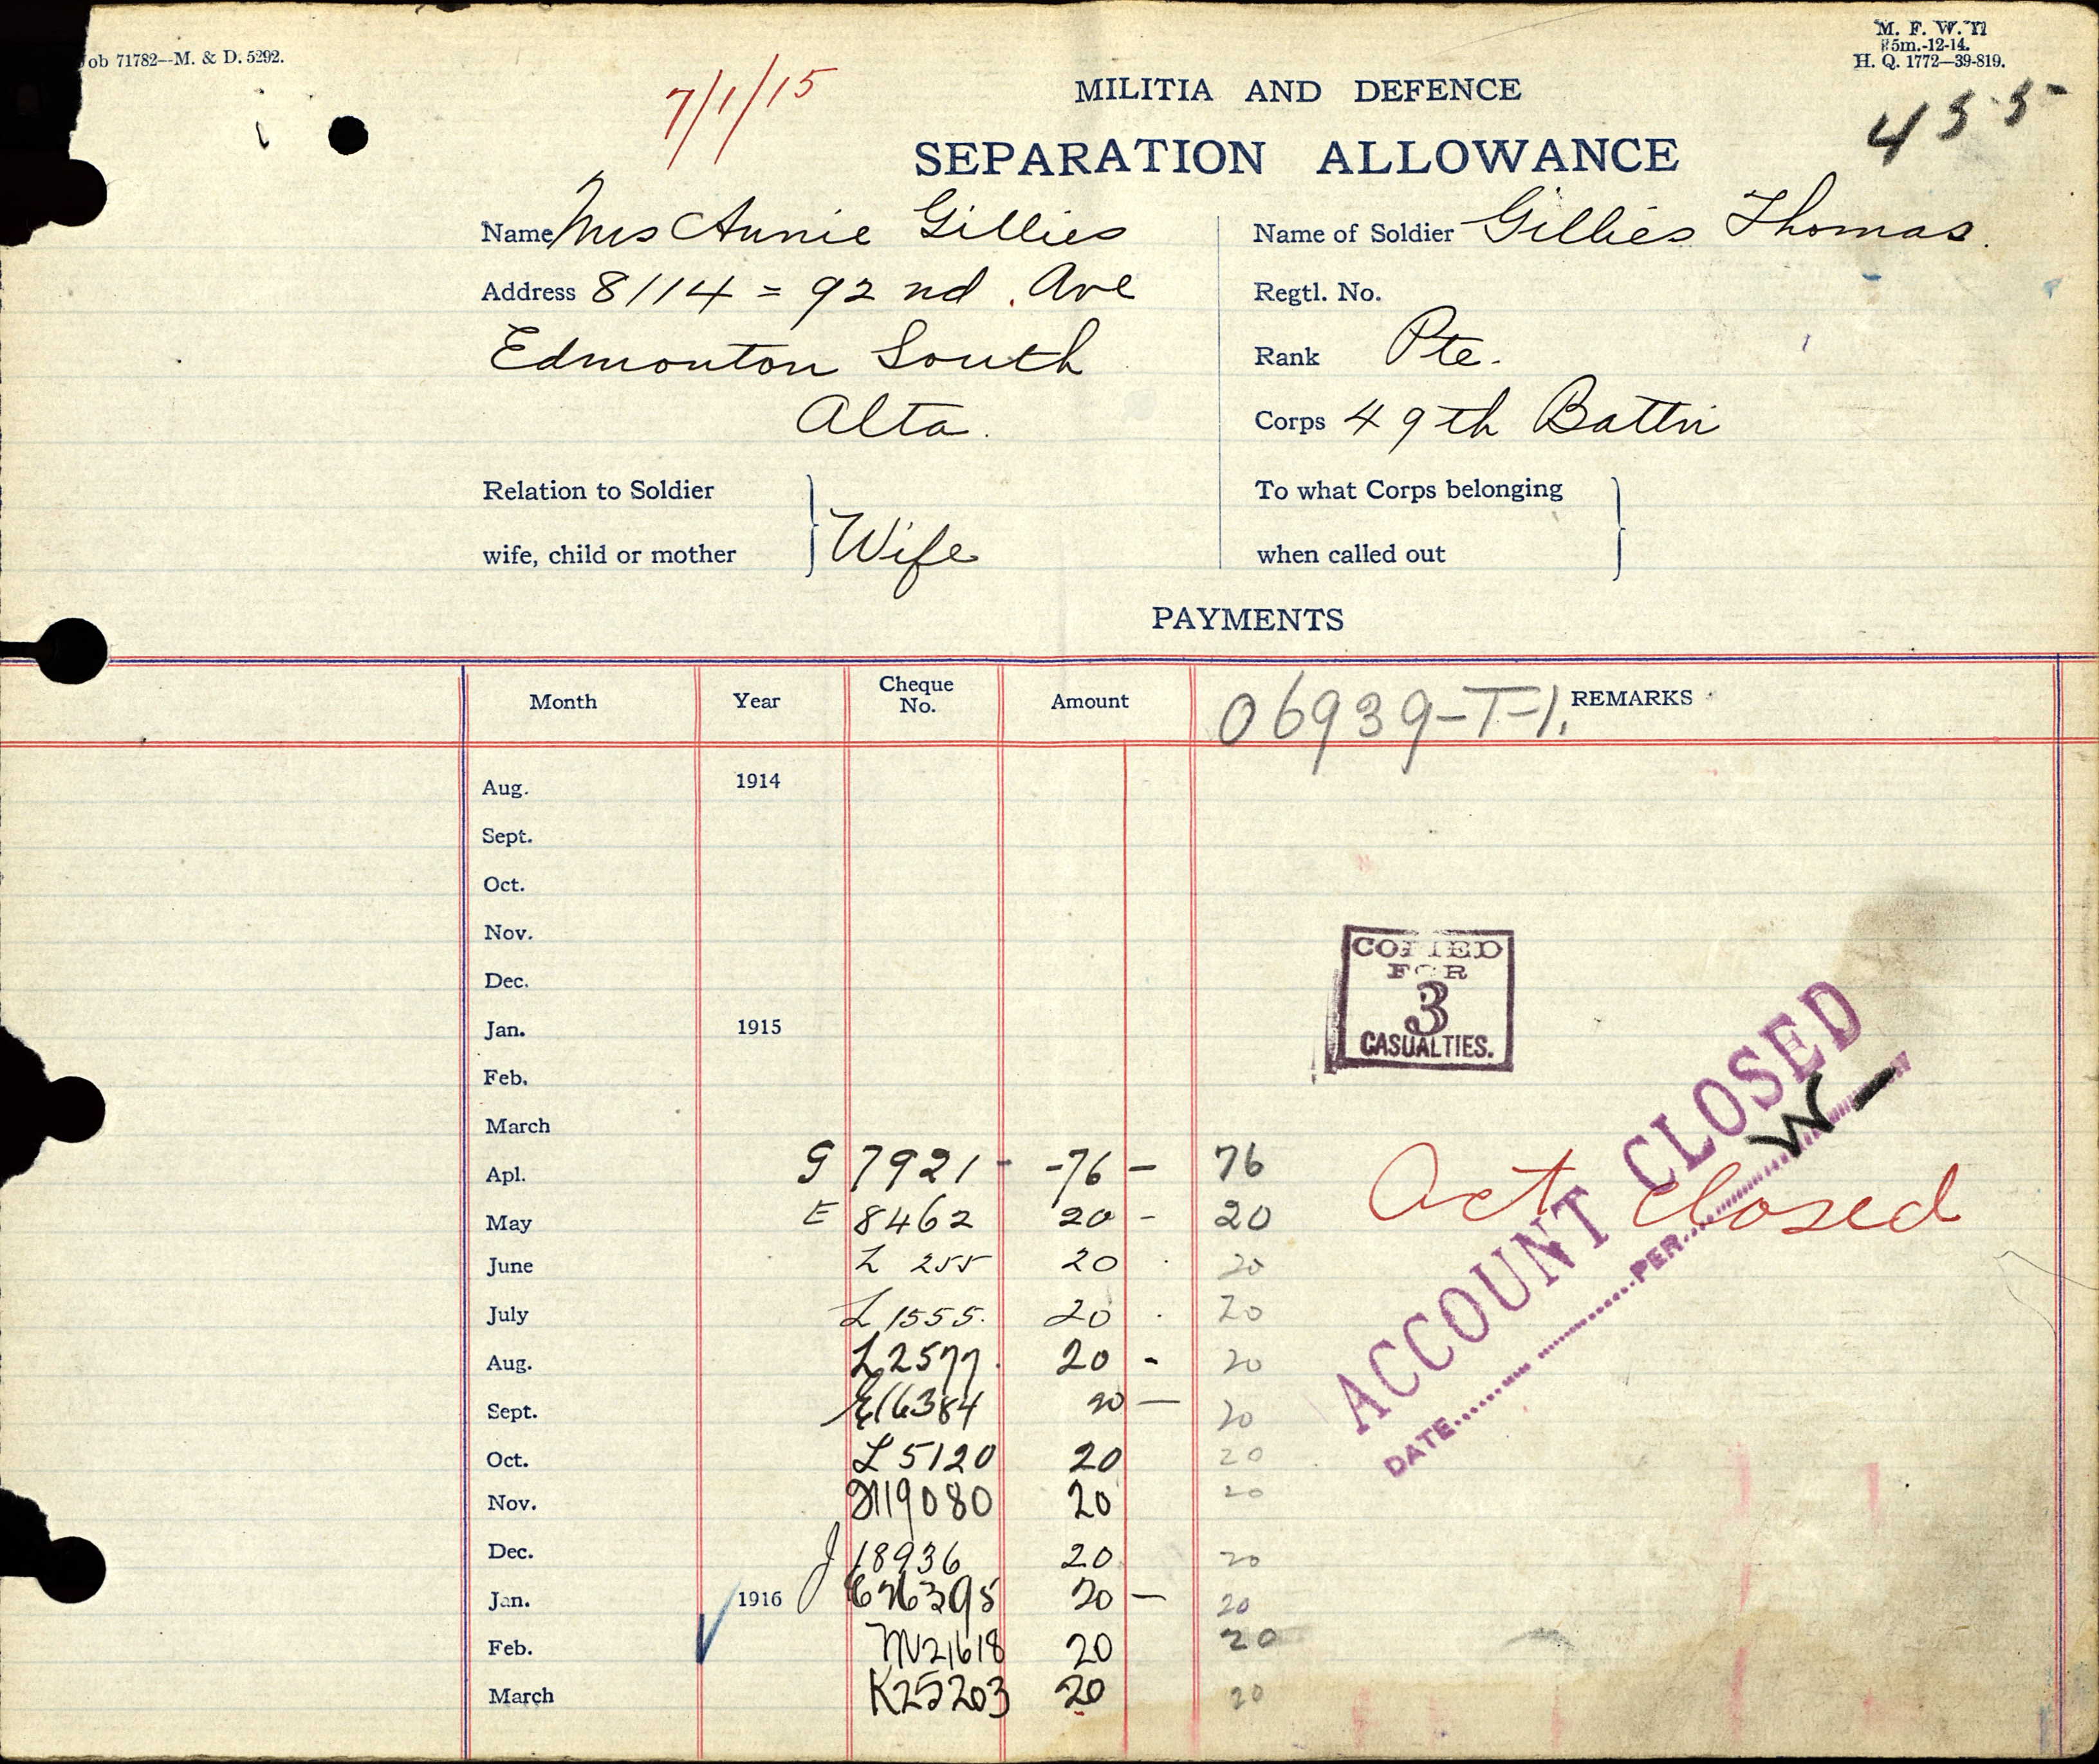 ob 71782--M. & D. 5292.
M. F. W.
5m.-12-14.
H. Q. 1772—39-819.
7/1/15
455
MILITIA AND DEFENCE
SEPARATION ALLOWANCE
Name Mrs Annie Gillies
Address 8114 = 92nd. Ave
Edmonton South
Alta.
Relation to Soldier
wife, child or mother
Wife
Name of Soldier Gillies Thomas.
Regtl. No.
Rank Pte.
Corps 49th Battn
To what Corps belonging
when called out
PAYMENTS
Month Year Cheque No. Amount 06939-T-1. REMARKS
Aug. 1914
Sept.
Oct.
Nov.
Dec.
Jan. 1915
Feb.
March
Apl. G 7921 - -76 - 76
May E 8462 20 - 20
June L 255 20 20
July L 1555. 20 20
Aug. L2577. 20 - 20
Sept. 16384 20 — 20
Oct. L 5120 20 20
Nov. 19080 20 20
Dec. J 18936 20 20
Jan. 1916 20 — 20
Feb. 21618 20 20
March K25203 20 20
COPIED
FOR
3
CASUALTIES.
Act closed
ACCOUNT CLOSED
DATE............PER............
W